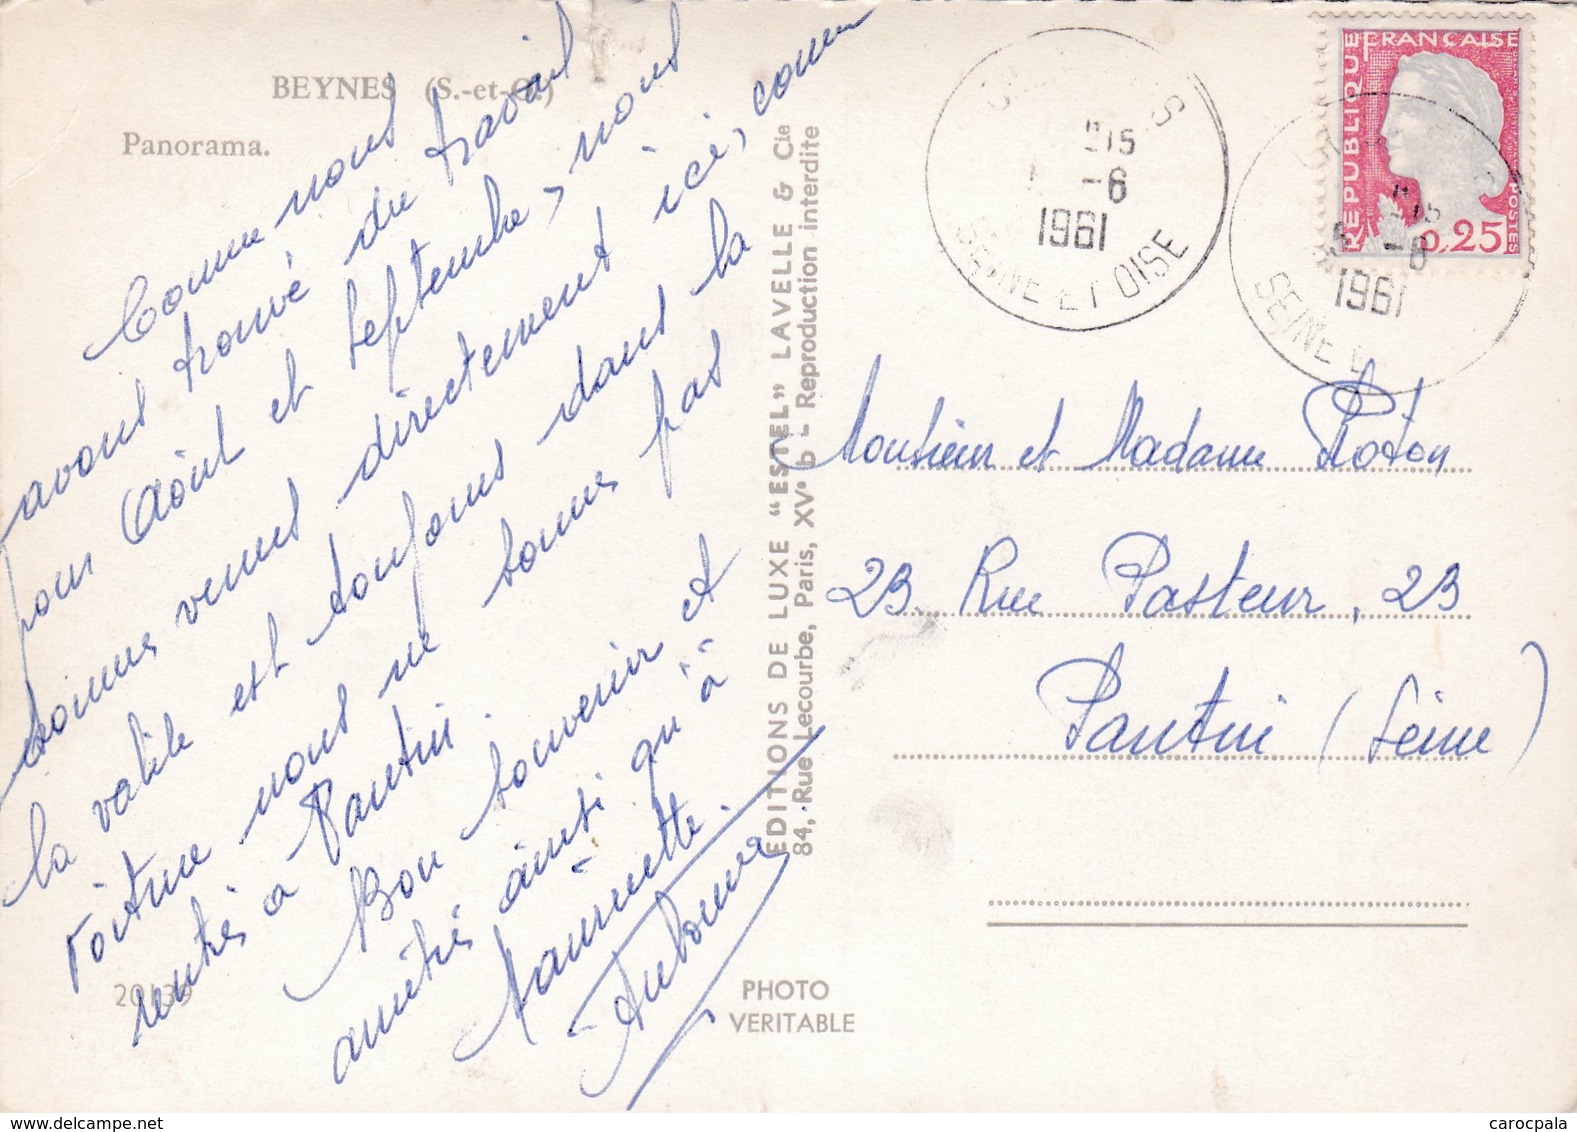 BEYNES (S.-et-O.)
Panorama.
Comme nous
avons trouvé du travail
pour Août et Septembre, nous
sommes venus directement ici, comme
la valise est toujours dans la
voiture nous ne sommes pas
rentrés à Pantin.
Bon souvenir et
amitiés ainsi qu'à
20139
EDITIONS DE LUXE "ESTEL" LAVELLE & Cie
84, Rue Lecourbe, Paris, XVe - Reproduction interdite
PHOTO
VERITABLE
1961
SEINE ET OISE
REPUBLIQUE FRANCAISE
POSTES
0,25
1961
SEINE
Monsieur et Madame Roton
23 Rue Pasteur, 23
Pantin (Seine)
www.delcampe.net
carocpala